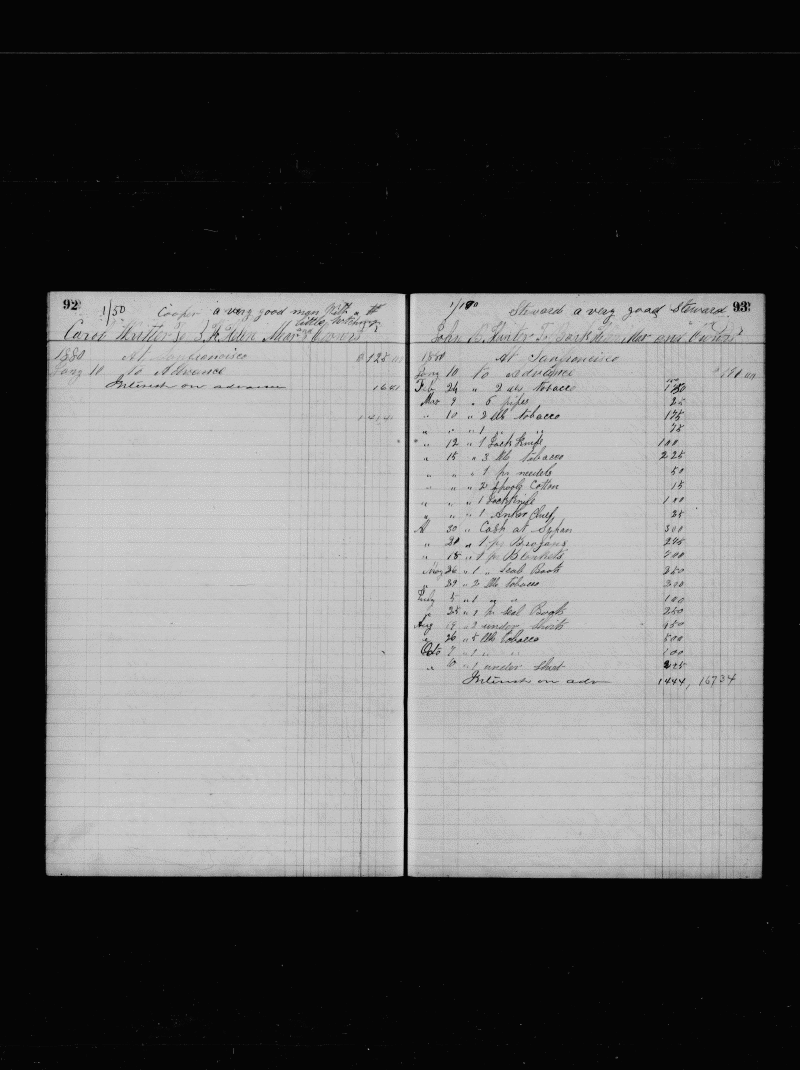 92
1/50 Cooper a very good man with a
little watching
and
Mar Owners
1880 At Sanfrancisco
Jany 10 to Advance $ 125 00
on advance 16 01
93
1/190 Steward a very good Steward
John To Bark Mar and Owners
1880 At Sanfrancisco
Jany 10 to advance 190 00
Feb 24 " 2 tobacco
Mar 9 " 5 pipes 25
" 10 " 2 lbs tobacco 175
" " " 1 " " 75
" 12 " 1 Jack Knife 100
" 15 " 3 lbs tobacco 225
" " " 1 pr needels 50
" " " 2 spools Cotton 15
" " " 1 Jack Knife 100
" " " 1 Anker Chief 25
30 " Cash at 300
" 20 " 1 pr Brogans 245
" 15 " 1 pr Blankets 700
May 26 " 1 " Seal Boots 250
" 29 " 2 lbs tobacco 300
July 5 " 1 " " 100
" 25 " 1 pr Seal Boots 250
Aug 19 " 2 under shirts 450
" 26 " 5 lbs tobacco 500
Octo 7 " 1 " " 100
" 10 " 1 under shirt 245
on adv 1444, 16734